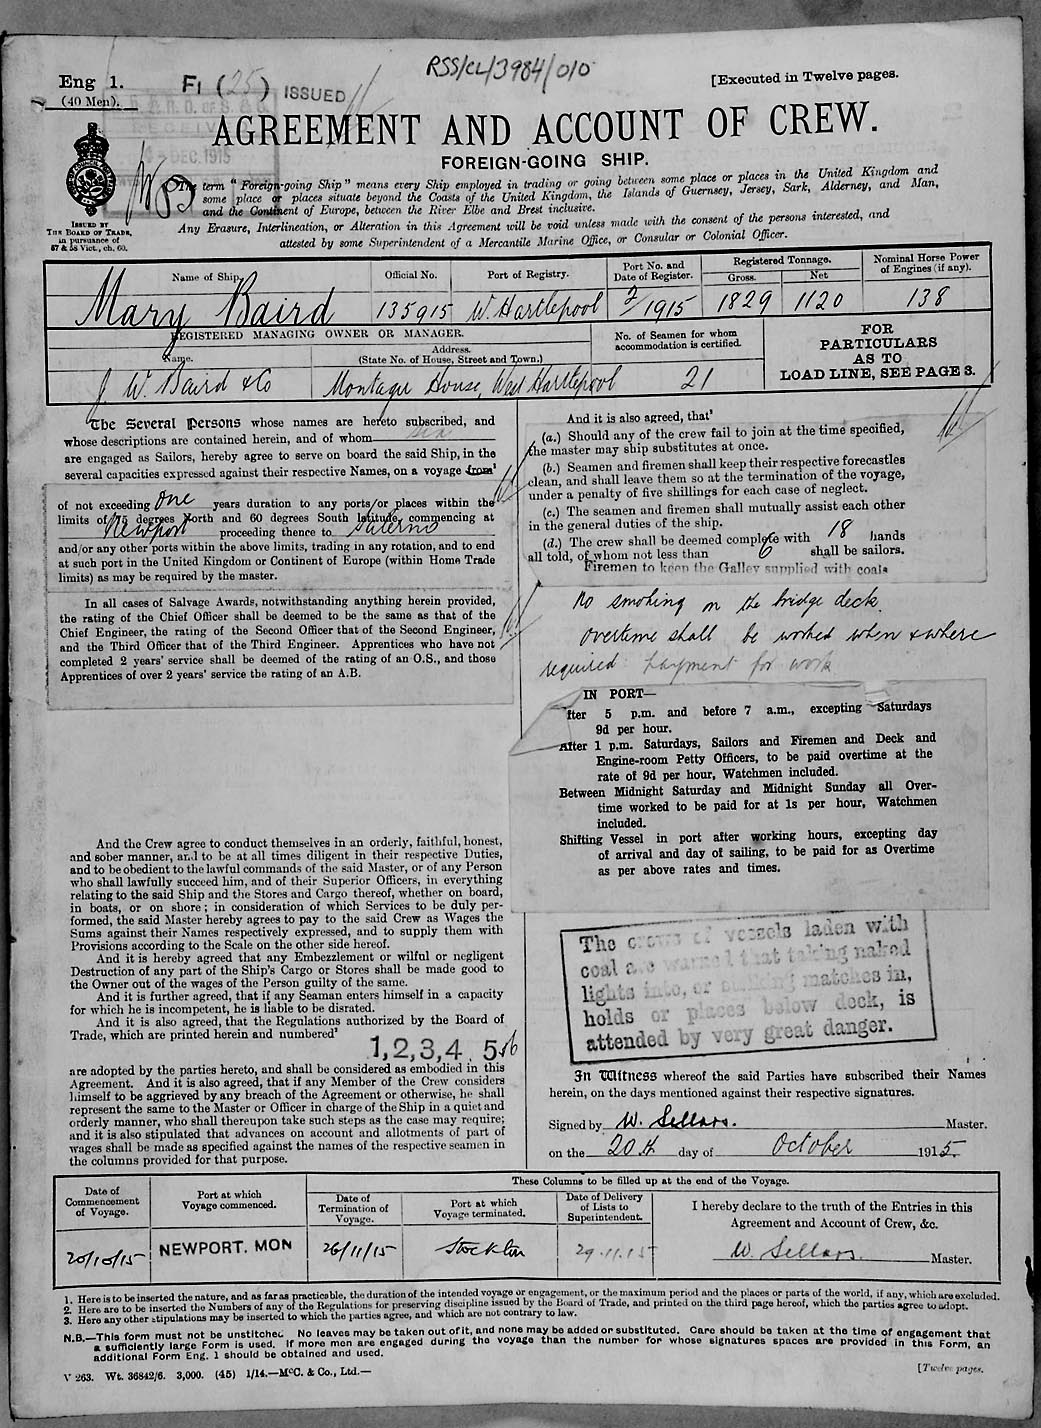 Eng 1.
(40 Men).
F1 (25) ISSUED
RSS/CL/3984/010
[Executed in Twelve pages.
DEC. 1915
AGREEMENT AND ACCOUNT OF CREW.
FOREIGN-GOING SHIP.
ISSUED BY
THE BOARD OF TRADE,
in pursuance of
57 & 58 Vict., ch. 60.
The term "Foreign-going Ship" means every Ship employed in trading or going between some place or places in the United Kingdom and
some place or places situate beyond the Coasts of the United Kingdom, the Islands of Guernsey, Jersey, Sark, Alderney, and Man,
and the Continent of Europe, between the River Elbe and Brest inclusive.
Any Erasure, Interlineation, or Alteration in this Agreement will be void unless made with the consent of the persons interested, and
attested by some Superintendent of a Mercantile Marine Office, or Consular or Colonial Officer.
Name of Ship. Official No. Port of Registry. Port No. and Date of Register. Registered Tonnage. Gross. Net Nominal Horse Power of Engines (if any).
Mary Baird 135915 W. Hartlepool 2/1915 1829 1120 138
REGISTERED MANAGING OWNER OR MANAGER.
Name. Address. (State No. of House, Street and Town.)
No. of Seamen for whom accommodation is certified.
J. W. Baird & Co Montague House, West Hartlepool 21
FOR
PARTICULARS
AS TO
LOAD LINE, SEE PAGE 3.
The Several Persons whose names are hereto subscribed, and
whose descriptions are contained herein, and of whom six
are engaged as Sailors, hereby agree to serve on board the said Ship, in the
several capacities expressed against their respective Names, on a voyage from¹
of not exceeding One years duration to any ports/or places within the
limits of 75 degrees North and 60 degrees South latitude, commencing at
Newport proceeding thence to Salerno
and/or any other ports within the above limits, trading in any rotation, and to end
at such port in the United Kingdom or Continent of Europe (within Home Trade
limits) as may be required by the master.
In all cases of Salvage Awards, notwithstanding anything herein provided,
the rating of the Chief Officer shall be deemed to be the same as that of the
Chief Engineer, the rating of the Second Officer that of the Second Engineer,
and the Third Officer that of the Third Engineer. Apprentices who have not
completed 2 years' service shall be deemed of the rating of an O.S., and those
Apprentices of over 2 years' service the rating of an A.B.
And the Crew agree to conduct themselves in an orderly, faithful, honest,
and sober manner, and to be at all times diligent in their respective Duties,
and to be obedient to the lawful commands of the said Master, or of any Person
who shall lawfully succeed him, and of their Superior Officers, in everything
relating to the said Ship and the Stores and Cargo thereof, whether on board,
in boats, or on shore; in consideration of which Services to be duly per-
formed, the said Master hereby agrees to pay to the said Crew as Wages the
Sums against their Names respectively expressed, and to supply them with
Provisions according to the Scale on the other side hereof.
And it is hereby agreed that any Embezzlement or wilful or negligent
Destruction of any part of the Ship's Cargo or Stores shall be made good to
the Owner out of the wages of the Person guilty of the same.
And it is further agreed, that if any Seaman enters himself in a capacity
for which he is incompetent, he is liable to be disrated.
And it is also agreed, that the Regulations authorized by the Board of
Trade, which are printed herein and numbered²
1, 2, 3, 4, 5 & 6
are adopted by the parties hereto, and shall be considered as embodied in this
Agreement. And it is also agreed, that if any Member of the Crew considers
himself to be aggrieved by any breach of the Agreement or otherwise, he shall
represent the same to the Master or Officer in charge of the Ship in a quiet and
orderly manner, who shall thereupon take such steps as the case may require;
and it is also stipulated that advances on account and allotments of part of
wages shall be made as specified against the names of the respective seamen in
the columns provided for that purpose.
And it is also agreed, that³
(a.) Should any of the crew fail to join at the time specified,
the master may ship substitutes at once.
(b.) Seamen and firemen shall keep their respective forecastles
clean, and shall leave them so at the termination of the voyage,
under a penalty of five shillings for each case of neglect.
(c.) The seamen and firemen shall mutually assist each other
in the general duties of the ship.
(d.) The crew shall be deemed complete with 18 hands
all told, of whom not less than 6 shall be sailors.
Firemen to keep the Galley supplied with coals
No smoking on the bridge deck.
Overtime shall be worked when & where
required payment for work
IN PORT—
fter 5 p.m. and before 7 a.m., excepting Saturdays
9d per hour.
After 1 p.m. Saturdays, Sailors and Firemen and Deck and
Engine-room Petty Officers, to be paid overtime at the
rate of 9d per hour, Watchmen included.
Between Midnight Saturday and Midnight Sunday all Over-
time worked to be paid for at 1s per hour, Watchmen
included.
Shifting Vessel in port after working hours, excepting day
of arrival and day of sailing, to be paid for as Overtime
as per above rates and times.
The crews of vessels laden with
coal are warned that taking naked
lights into, or striking matches in,
holds or places below deck, is
attended by very great danger.
In Witness whereof the said Parties have subscribed their Names
herein, on the days mentioned against their respective signatures.
Signed by W. Sellars. Master.
on the 20th day of October 1915.
These Columns to be filled up at the end of the Voyage.
Date of Commencement of Voyage. Port at which Voyage commenced. Date of Termination of Voyage. Port at which Voyage terminated. Date of Delivery of Lists to Superintendent. I hereby declare to the truth of the Entries in this Agreement and Account of Crew, &c.
20/10/15 NEWPORT. MON 26/11/15 Stockton 29.11.15 W. Sellars. Master.
1. Here is to be inserted the nature, and as far as practicable, the duration of the intended voyage or engagement, or the maximum period and the places or parts of the world, if any, which are excluded.
2. Here are to be inserted the Numbers of any of the Regulations for preserving discipline issued by the Board of Trade, and printed on the third page hereof, which the parties agree to adopt.
3. Here any other stipulations may be inserted to which the parties agree, and which are not contrary to law.
N.B.—This form must not be unstitched. No leaves may be taken out of it, and none may be added or substituted. Care should be taken at the time of engagement that
a sufficiently large Form is used. If more men are engaged during the voyage than the number for whose signatures spaces are provided in this Form, an
additional Form Eng. 1 should be obtained and used.
V 263. Wt. 36842/6. 3,000. (45) 1/14.—McC. & Co., Ltd.—
[Twelve pages.